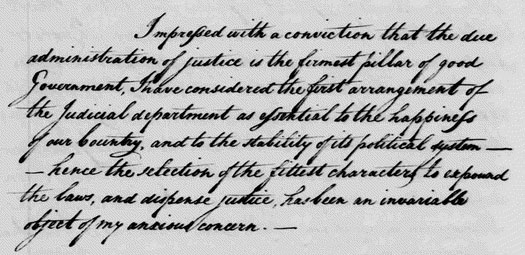 Impressed with a conviction that the due
administration of justice is the firmest pillar of good
Government, I have considered the first arrangement of
the Judicial department as essential to the happiness
of our Country, and to the stability of its political system —
— hence the selection of the fittest characters to expound
the laws, and dispense justice, has been an invariable
object of my anxious concern. —